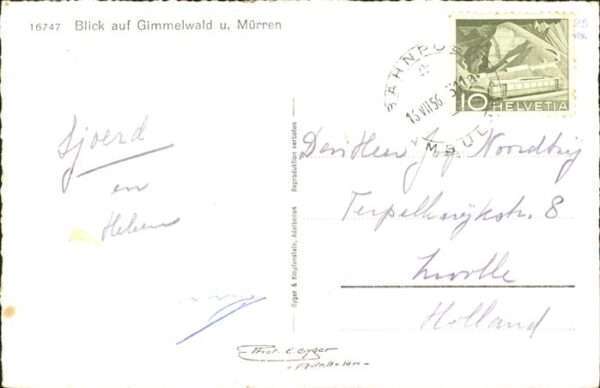 16747 Blick auf Gimmelwald u. Mürren
10 HELVETIA
BAHNPOS
15 VII 56
AMBUL
Sjoerd
en
Heleen
Den Heer Jos. Noordbrij
Terpelkwijkstr. 8
Zwolle
Holland
Gyger & Klopfenstein, Adelboden Reproduktion verboten
Phot. E. Gyger
- Adelboden -